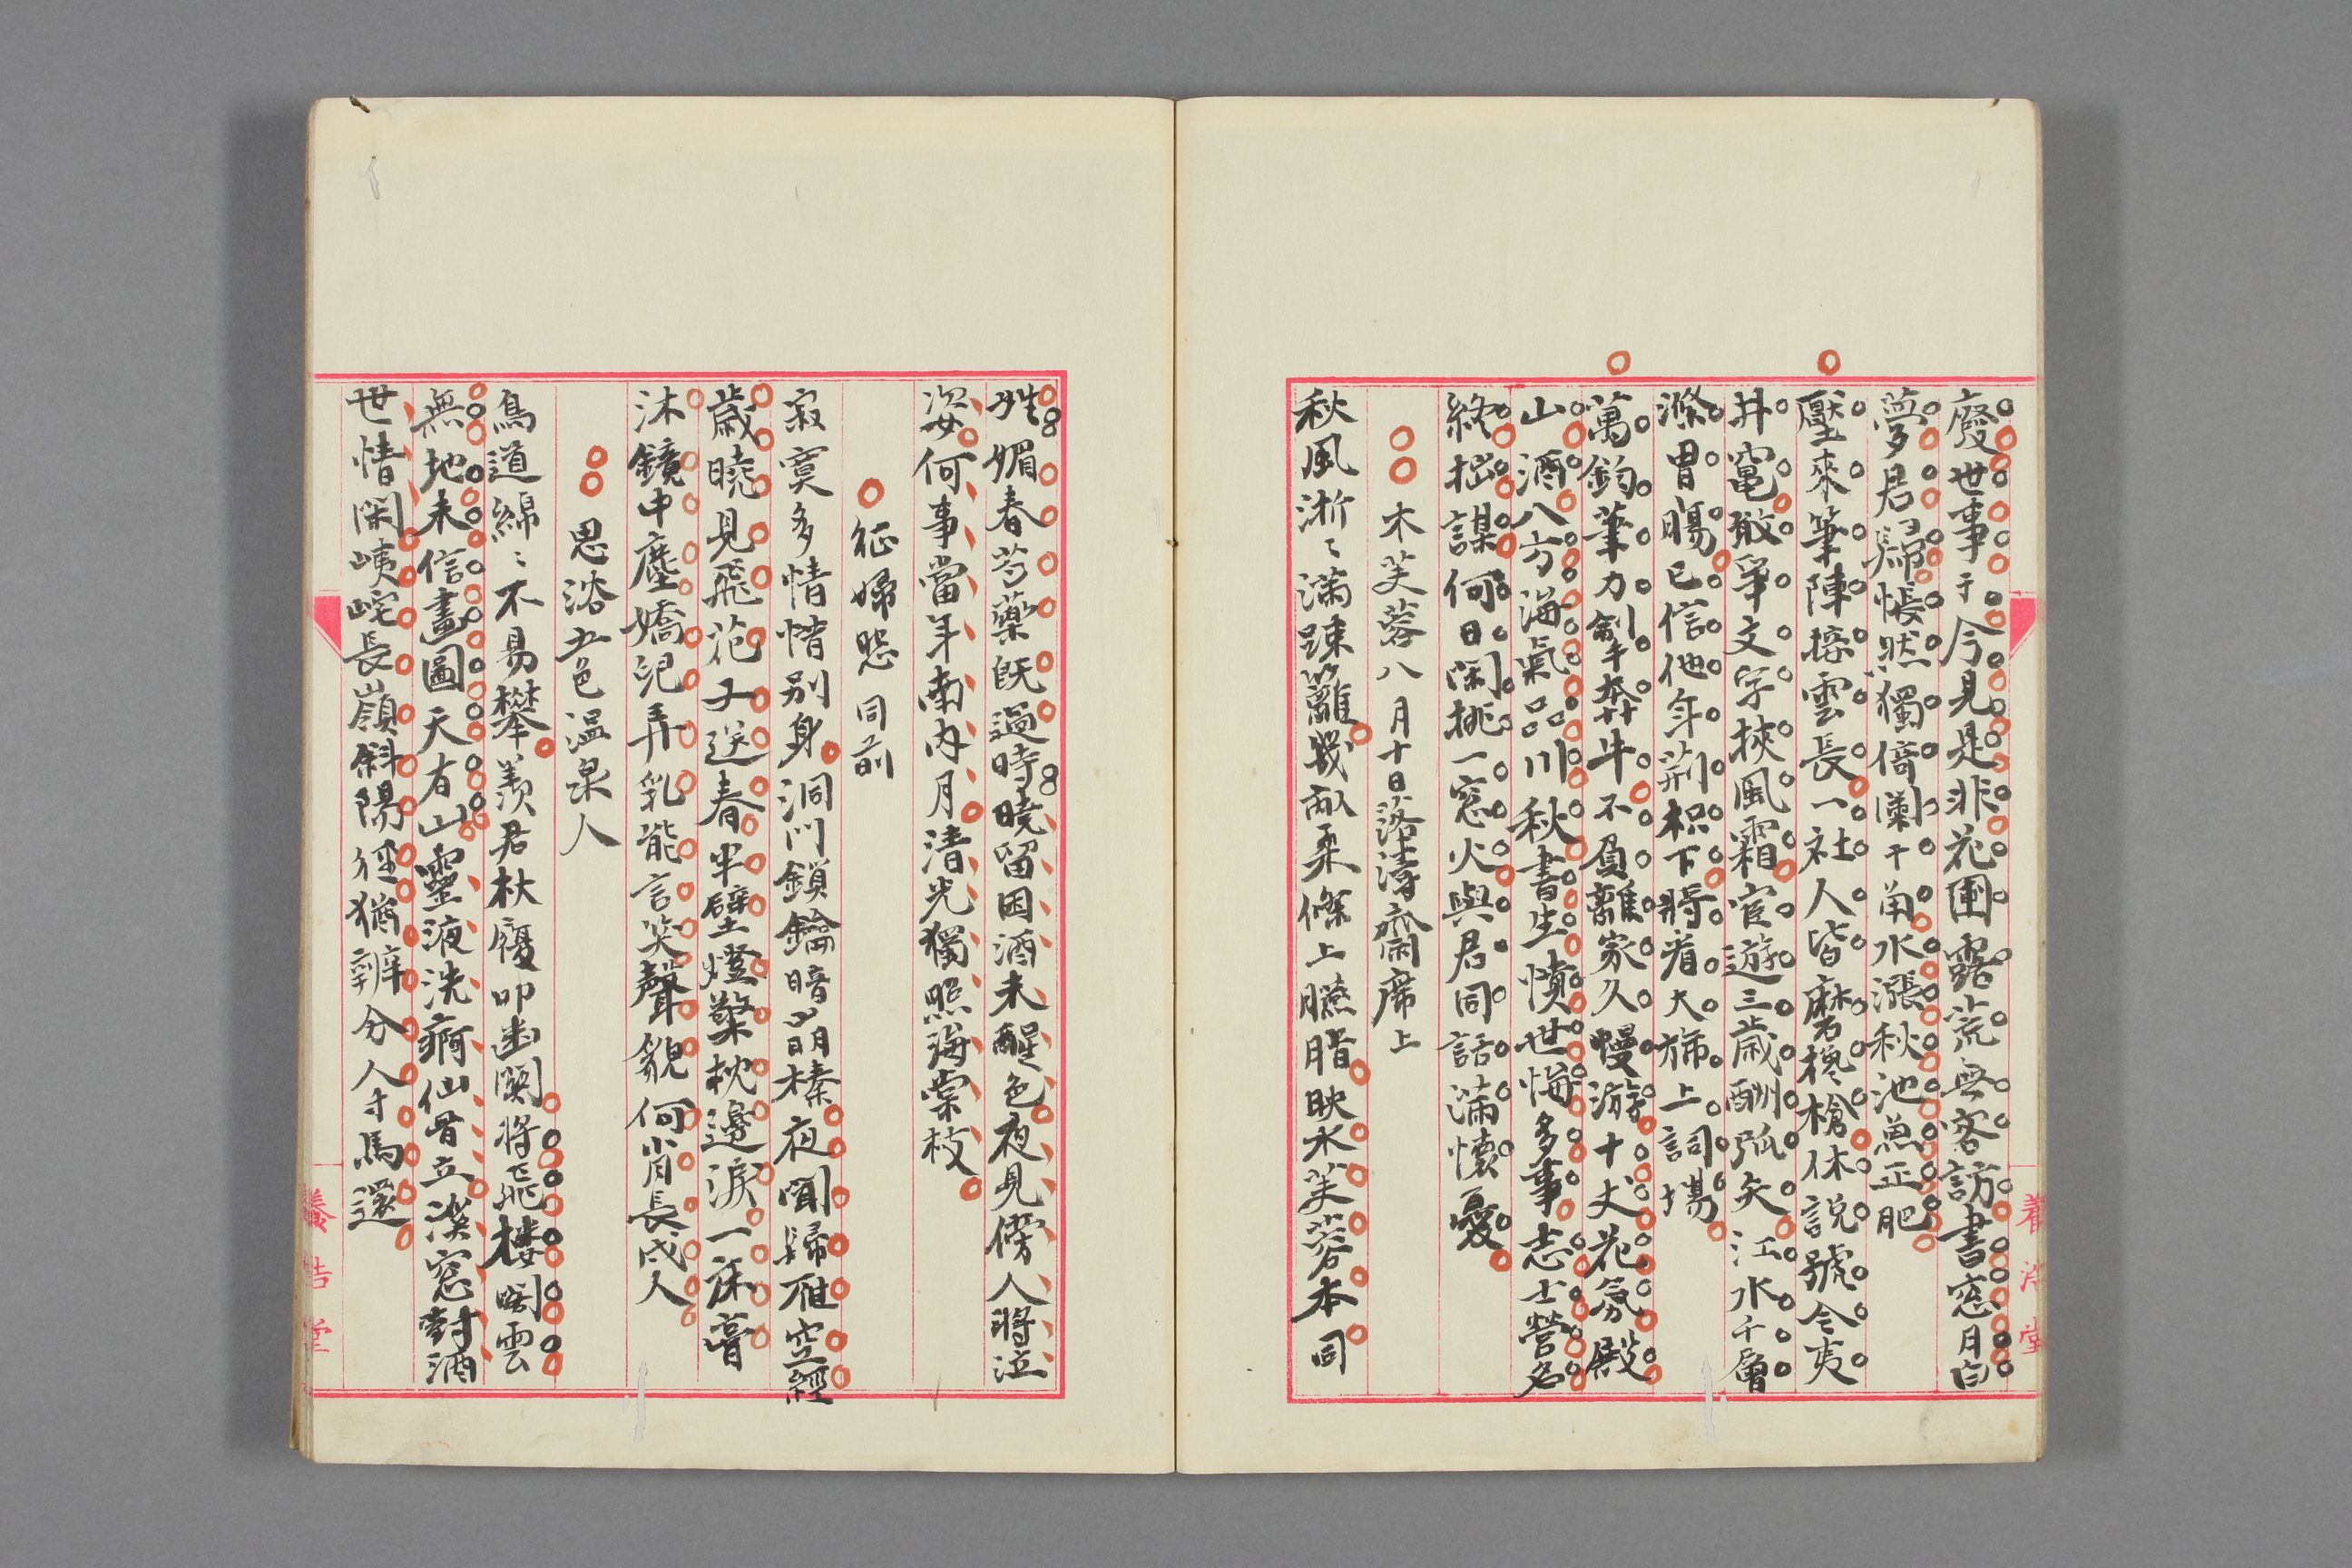 廢世事于今見是非花圃露荒無客訪書窓月白
夢君歸悵然獨倚闌干角水漲秋池魚正肥
壓來筆陣接雲長一社人皆磨槍休說號令夷
井竈敢爭文字挾風霜宦遊三歲酬弧矢江水千層
滌胃腸已信他年荊枳下將看大旆上詞場
萬鈞筆力制犇牛不負離家久慢游十丈花氛殿
山酒八方海氣品川秋書生憤世悔多事志士營名
終拙謀何日閑挑一窓火與君同話滿懷憂
木芙蓉八月十日落濤齋席上
秋風淅〻滿疎籬幾畝柔條上臙脂映水芙蓉本同
姓媚春芍藥旣過時曉留困酒未醒色夜見傍人將泣
姿何事當年南內月清光獨照海棠枝
征婦怨同前
寂寞多情惜別身洞門鎖鑰暗荊榛夜聞歸雁空經
歲曉見飛花又送春半壁燈檠枕邊淚一床膏
沐鏡中塵嬌兒弄乳能言笑聲貌何肖長戍人
思浴五色温泉人
鳥道綿〻不易攀羨君杖履叩幽關將飛樓閣雲
無地未信畫圖天有山靈液洗痾仙骨立溪窓對酒
世情閑峓峔長嶺斜陽徑猶辨分人寸馬還
養浩堂
養浩堂